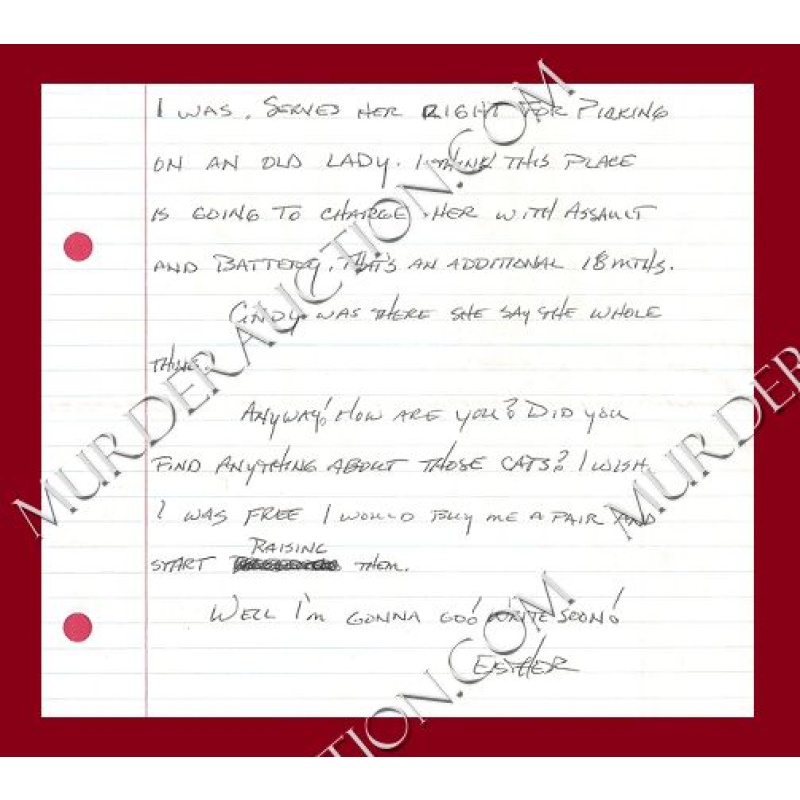 I WAS. SERVED HER RIGHT FOR PICKING
ON AN OLD LADY. I THINK THIS PLACE
IS GOING TO CHARGE HER WITH ASSAULT
AND BATTERY. THAT'S AN ADDITIONAL 18 MTHS.
CINDY WAS THERE SHE SAY THE WHOLE
THING.
ANYWAY! HOW ARE YOU? DID YOU
FIND ANYTHING ABOUT THOSE CATS? I WISH
I WAS FREE I WOULD BUY ME A PAIR AND
RAISING
START THEM.
WELL I'M GONNA GO! WRITE SOON!
ESTHER
MURDERAUCTION.COM
MURDER
TION.COM